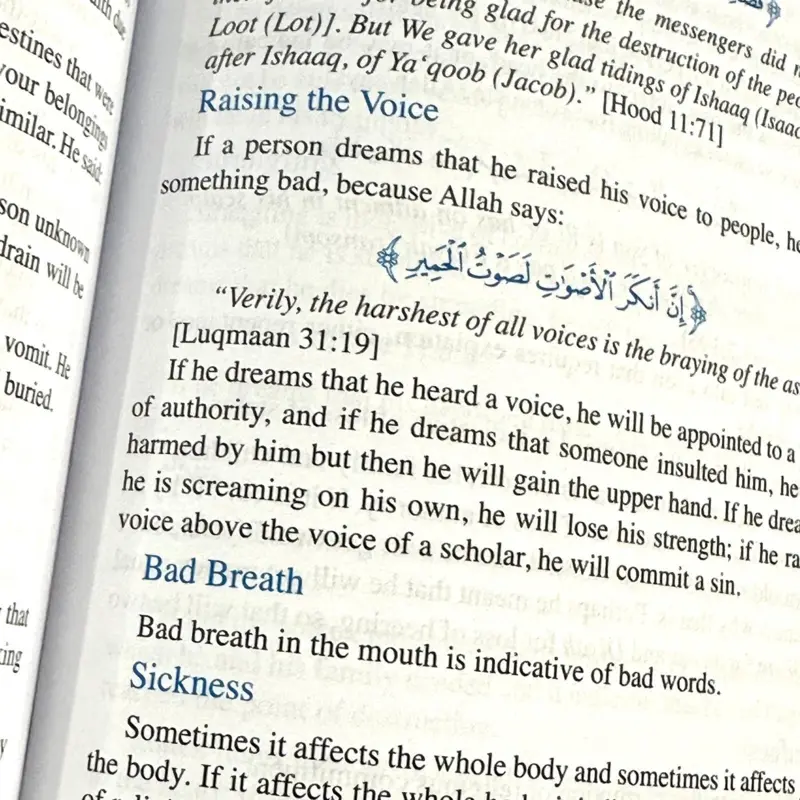 nith due
estines that were
your belongings
similar. He said:
son unknown
drain will be
vomit. He
buried.
that
cing
being glad for the destruction of the peo
the messengers did
Loot (Lot)]. But We gave her glad tidings of Ishaaq (Isaac
after Ishaaq, of Ya‘qoob (Jacob).” [Hood 11:71]
Raising the Voice
If a person dreams that he raised his voice to people, he
something bad, because Allah says:
﴿إِنَّ أَنكَرَ ٱلْأَصْوَٰتِ لَصَوْتُ ٱلْحَمِيرِ﴾
“Verily, the harshest of all voices is the braying of the as
[Luqmaan 31:19]
If he dreams that he heard a voice, he will be appointed to a
of authority, and if he dreams that someone insulted him, he
harmed by him but then he will gain the upper hand. If he drea
he is screaming on his own, he will lose his strength; if he ra
voice above the voice of a scholar, he will commit a sin.
Bad Breath
Bad breath in the mouth is indicative of bad words.
Sickness
Sometimes it affects the whole body and sometimes it affects
the body. If it affects the whole body